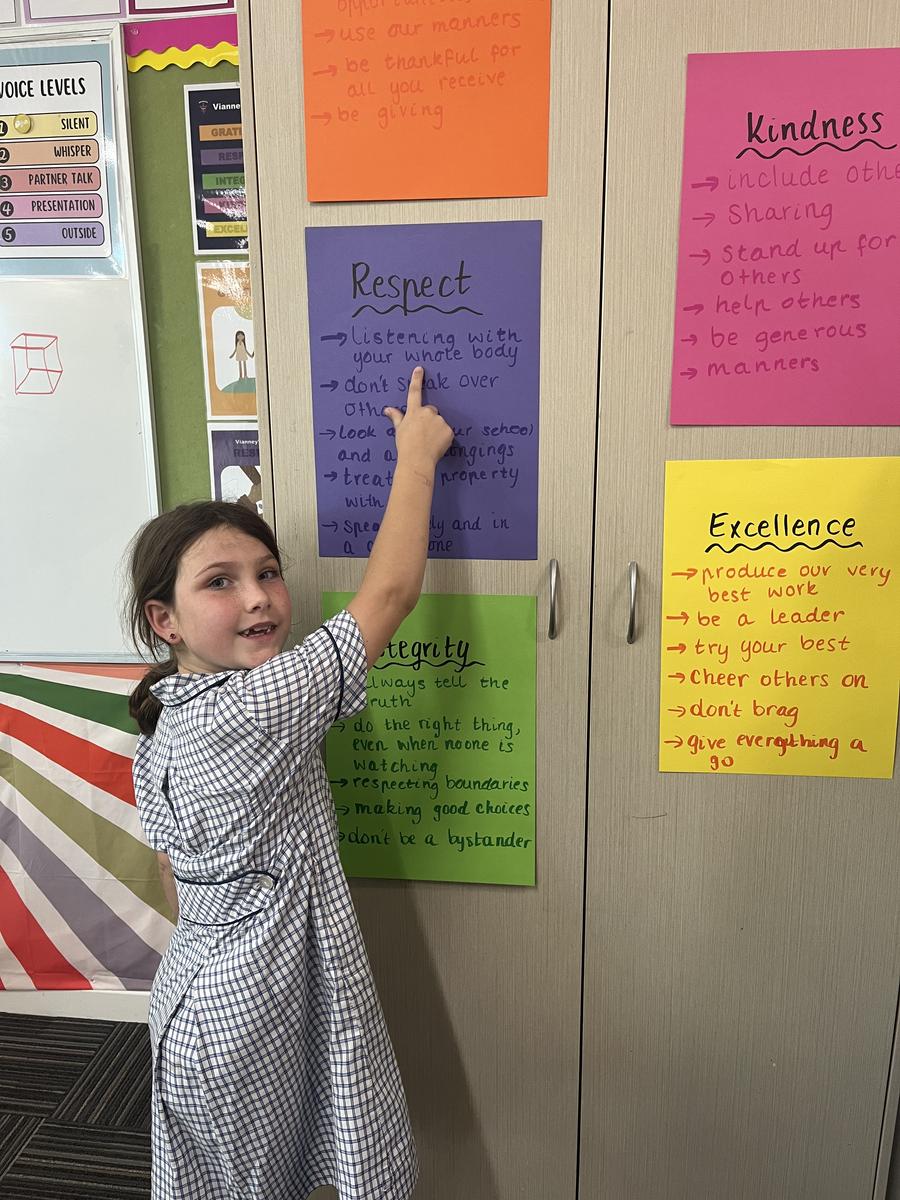 VOICE LEVELS
SILENT
2 WHISPER
3 PARTNER TALK
4 PRESENTATION
5 OUTSIDE
Vianney
GRATI
RESP
INTEG
EXCELL
→ use our manners
→ be thankful for
all you receive
→ be giving
Respect
→ Listening with
your whole body
→ don't speak over
→ look
and
→ treat property
with
→ and in
a
Integrity
always tell the
truth
→ do the right thing,
even when noone is
watching
→ respecting boundaries
→ making good choices
→ don't be a bystander
Kindness
→ include
→ Sharing
→ Stand up for
others
→ help others
→ be generous
→ manners
Excellence
→ produce our very
best work
→ be a leader
→ try your best
→ Cheer others on
→ don't brag
→ give everything a
go